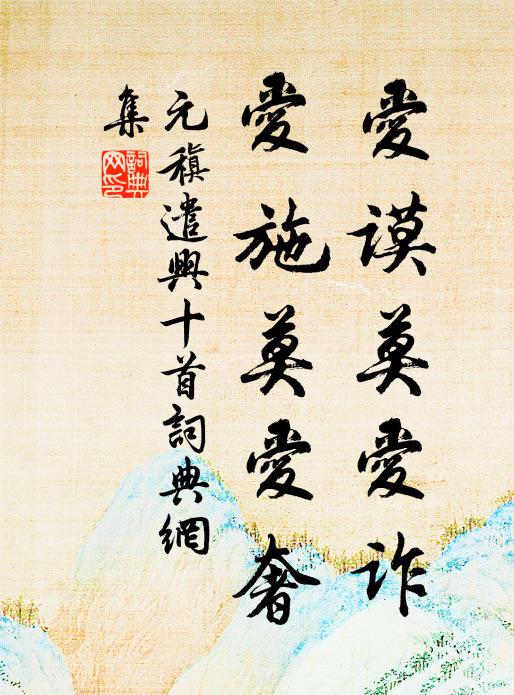 愛謨莫愛詐
愛施莫愛奢
元稹遣興十首詞典網
集
詞典網印